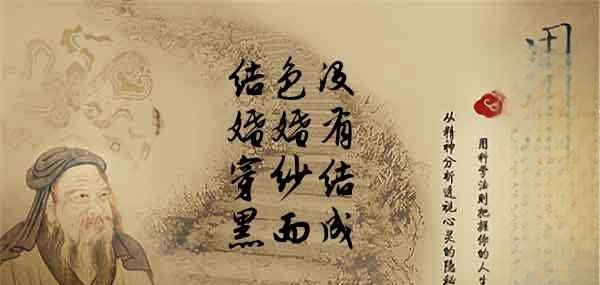 结婚穿黑
色婚纱而
没有结成
从精神分析透视心灵的隐秘
用科学法则把握你的人生